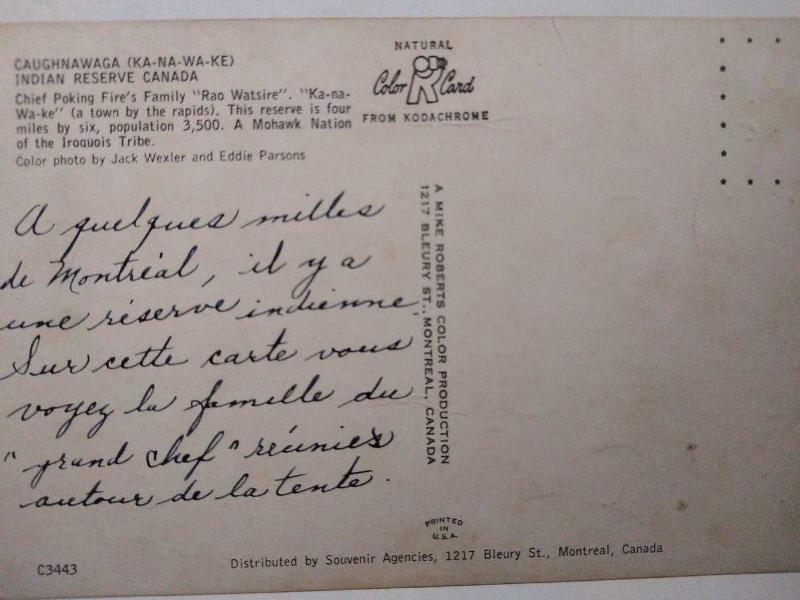 CAUGHNAWAGA (KA-NA-WA-KE)
INDIAN RESERVE CANADA
Chief Poking Fire's Family "Rao Watsire". "Ka-na-
Wa-ke" (a town by the rapids). This reserve is four
miles by six, population 3,500. A Mohawk Nation
of the Iroquois Tribe.
Color photo by Jack Wexler and Eddie Parsons
NATURAL
Color Card
FROM KODACHROME
A quelques milles
de Montréal, il y a
une réserve indienne,
Sur cette carte vous
voyez la famille du
"grand chef" réunies
autour de la tente.
A MIKE ROBERTS COLOR PRODUCTION
1217 BLEURY ST., MONTREAL, CANADA
PRINTED
IN
U.S.A.
C3443
Distributed by Souvenir Agencies, 1217 Bleury St., Montreal, Canada